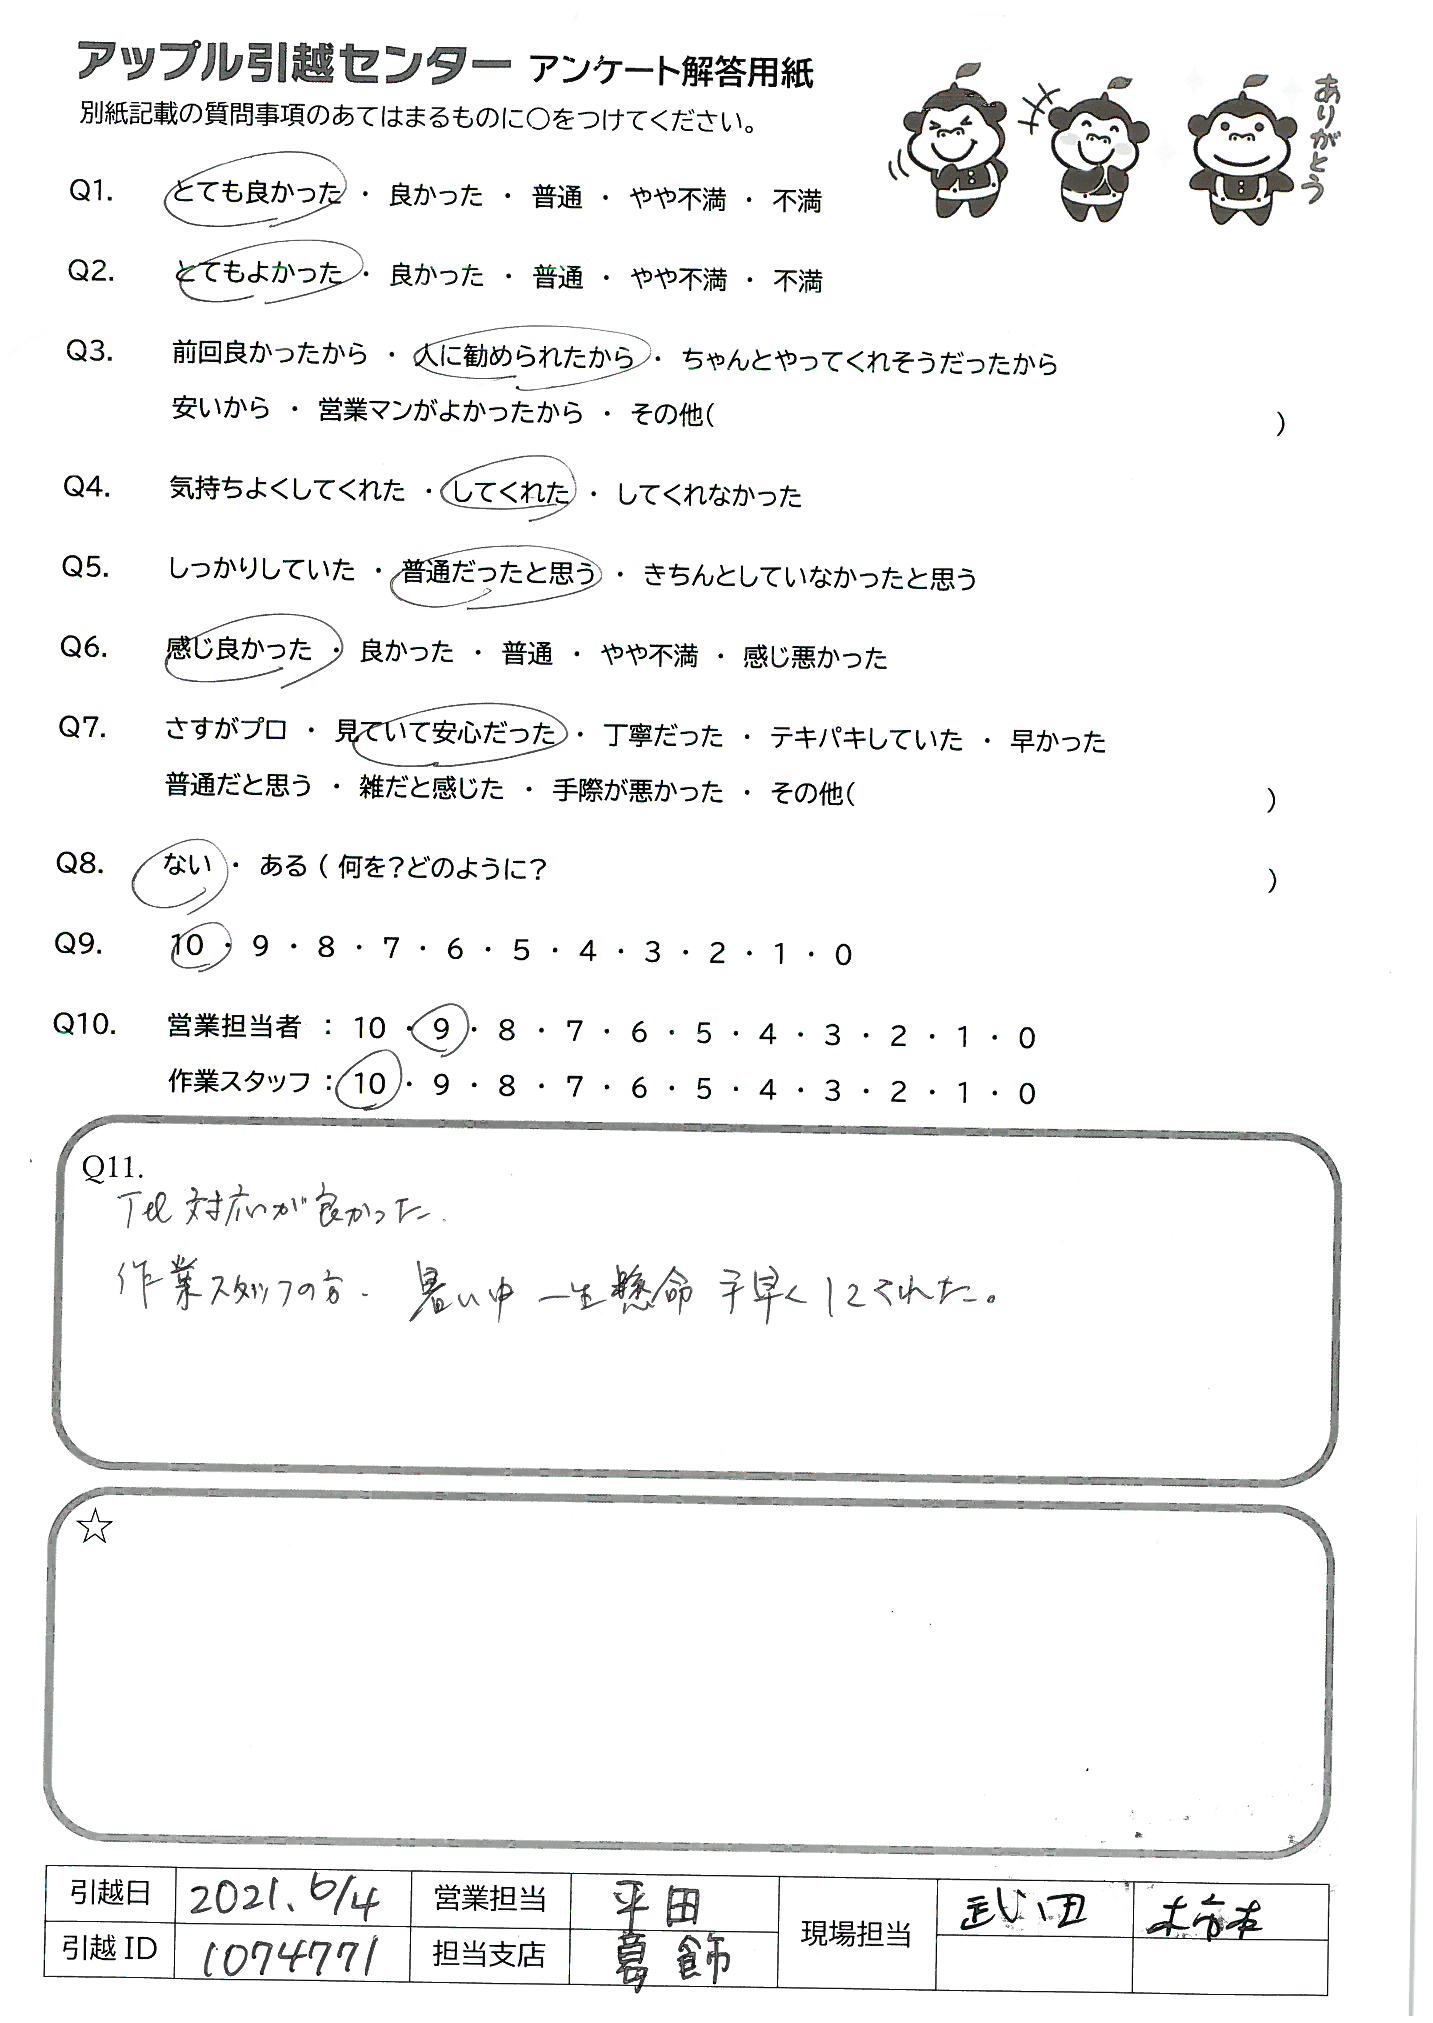 アップル引越センター アンケート解答用紙
別紙記載の質問事項のあてはまるものに〇をつけてください。
ありがとう
Q1. とても良かった ・ 良かった ・ 普通 ・ やや不満 ・ 不満
Q2. とてもよかった ・ 良かった ・ 普通 ・ やや不満 ・ 不満
Q3. 前回良かったから ・ 人に勧められたから ・ ちゃんとやってくれそうだったから
安いから ・ 営業マンがよかったから ・ その他( )
Q4. 気持ちよくしてくれた ・ してくれた ・ してくれなかった
Q5. しっかりしていた ・ 普通だったと思う ・ きちんとしていなかったと思う
Q6. 感じ良かった ・ 良かった ・ 普通 ・ やや不満 ・ 感じ悪かった
Q7. さすがプロ ・ 見ていて安心だった ・ 丁寧だった ・ テキパキしていた ・ 早かった
普通だと思う ・ 雑だと感じた ・ 手際が悪かった ・ その他( )
Q8. ない ・ ある ( 何を?どのように? )
Q9. 10 ・ 9 ・ 8 ・ 7 ・ 6 ・ 5 ・ 4 ・ 3 ・ 2 ・ 1 ・ 0
Q10. 営業担当者 : 10 ・ 9 ・ 8 ・ 7 ・ 6 ・ 5 ・ 4 ・ 3 ・ 2 ・ 1 ・ 0
作業スタッフ : 10 ・ 9 ・ 8 ・ 7 ・ 6 ・ 5 ・ 4 ・ 3 ・ 2 ・ 1 ・ 0
Q11.
Tel 対応いが良かった.
作業スタッフの方. 暑い中 一生懸命 手早くしてくれた。
☆
引越日 2021.6/4 営業担当 平田 現場担当 武田
引越 ID 1074771 担当支店 葛飾